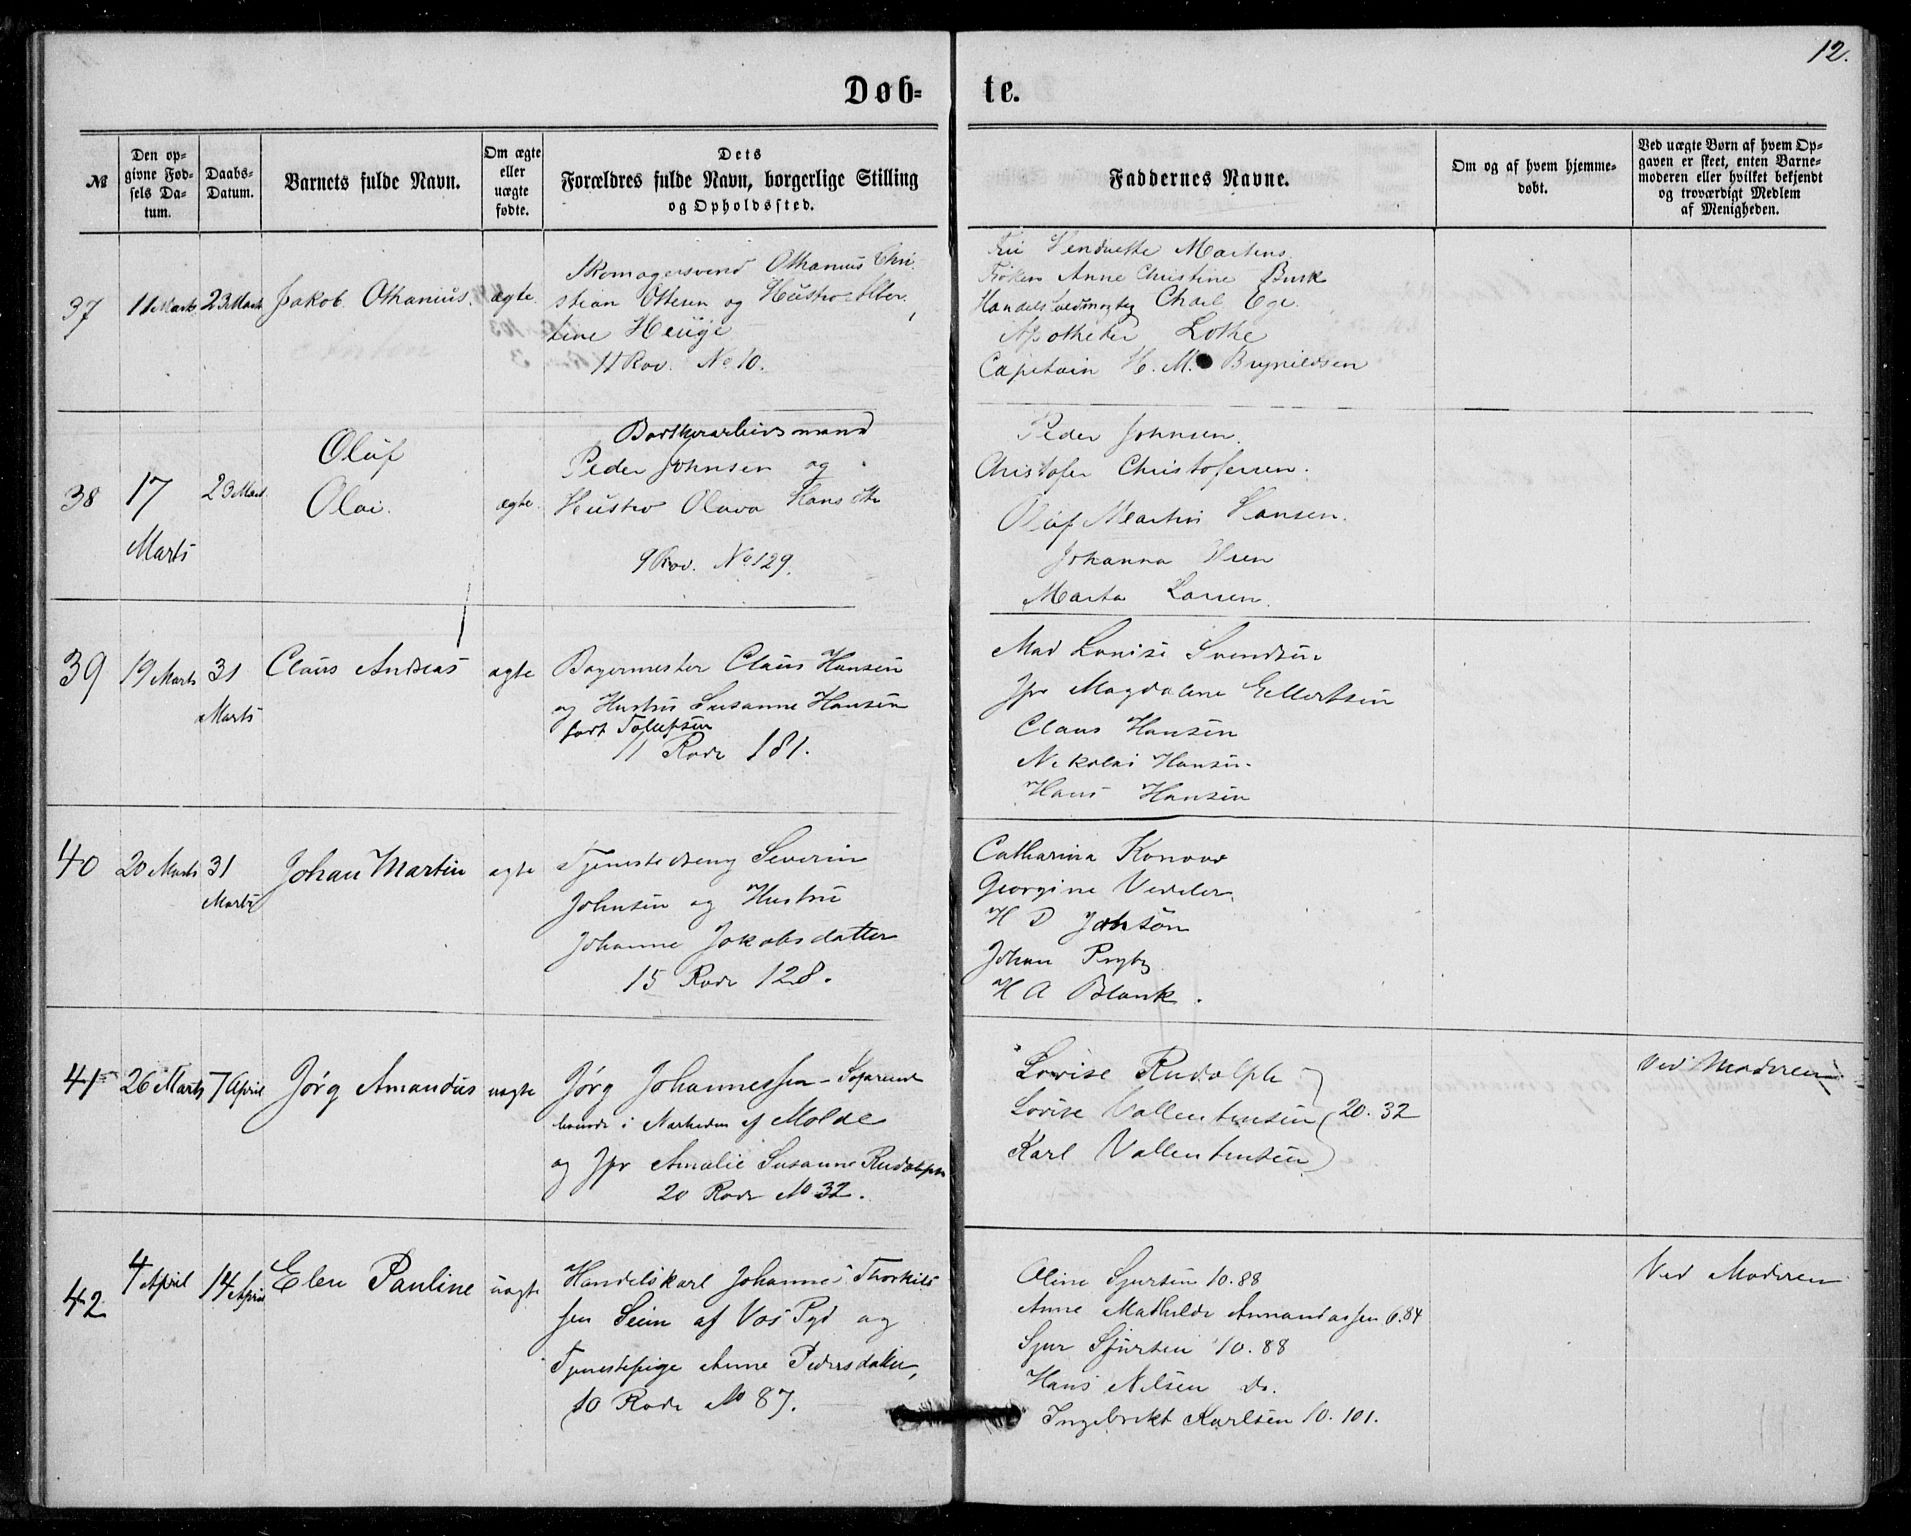 12.
Døb= te.
№
Den op=
givne Fød=
sels Da=
tum.
Daabs=
Datum.
Barnets fulde Navn.
Om ægte
eller
uægte
fødte.
Dets
Forældres fulde Navn, borgerlige Stilling
og Opholdssted.
Faddernes Navne.
Om og af hvem hjemme=
døbt.
Ved uægte Børn af hvem Op=
gaven er skeet, enten Barne=
moderen eller hvilket bekjendt
og troværdigt Medlem
af Menigheden.
37
11 Marts
23 Marts
Jakob Othanius.
ægte
Skomagersvend Othanius Chri
stian Olsen og Hustro Alber
tine
11 Rov. No 10.
Martens
Frøken Anne Christine Busk
Charl Ege.
Apotheker Lothe
Capitain H. M. Brynildsen
38
17
Marts
23 Mart
Oluf
Olai.
ægte
Peder Johnsen og
Hustro Olava Hans dtr
9 Rov. No 129.
Peder Johnsen.
Christofer Christofersen.
Oluf Martin Hansen.
Johanna
Marta Larsen.
39
19 Marts
31
Marts
Claus Andreas
ægte
Bagermester Claus Hansen
og Hustru Susanne Hansen
født Tollefsen
11 Rode 181.
Mad Lovise Svendsen
Jfr Magdalene Ellertsen
Claus Hansen
Nikolai Hansen
Hans Hansen
40
20 Marts
31
Marts
Johan Martin
ægte
Tjenestedreng Severin
Johnsen og Hustru
Johanne Jakobsdatter
15 Rode 128.
Catharina Konow
Georgine Vedeler
H D Johnson
Johan
H A Blank.
41
26 Marts
7 April
Jørg Amandus
uægte
Jørg Johannessen - Søfarende
boende i Nærheden af Molde
og Jfr Amalie Susanne Rudolph
20 Rode No 32.
Lovise Rudolph
Lovise Vallentinsen 20. 32
Karl Vallentinsen
Ved Moderen
42
4 April
14 April
Elen Pauline
uægte
Handelskarl Johannes Thorkils
sen Seim af Vos Pgd og
Tjenestepige Anne Pedersdatter,
10 Rode No 87.
Oline Sjursen 10. 88
Anne Mathilde Amandassen 6. 84
Sjur Sjursen 10. 88
Hans Nilsen do.
Ingebrikt Karlsen 10. 101.
Ved Moderen